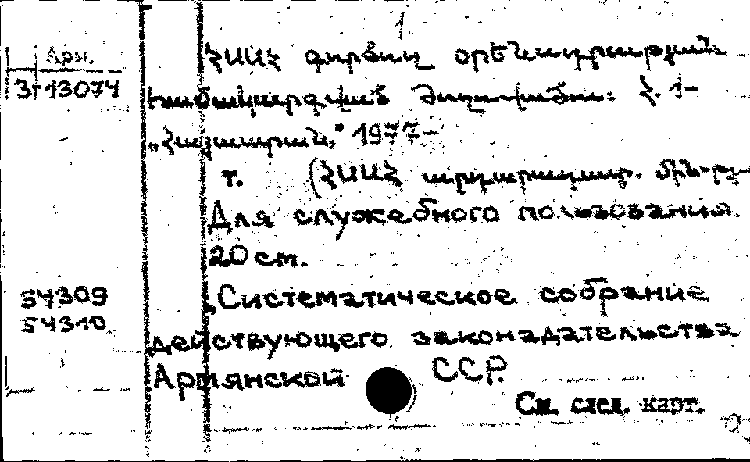 Арм.
3т13074
ՀՍՍՀ գործող օրենսդրության
համակարգված ժողովածու: Հ. 1-
„Հայաստան,” 1977-
т. (ՀՍՍՀ
Для служебного пользования.
20 см.
54309
54310
„Систематическое собрание
действующего законадательства
Армянской ССР.
См. след. карт.